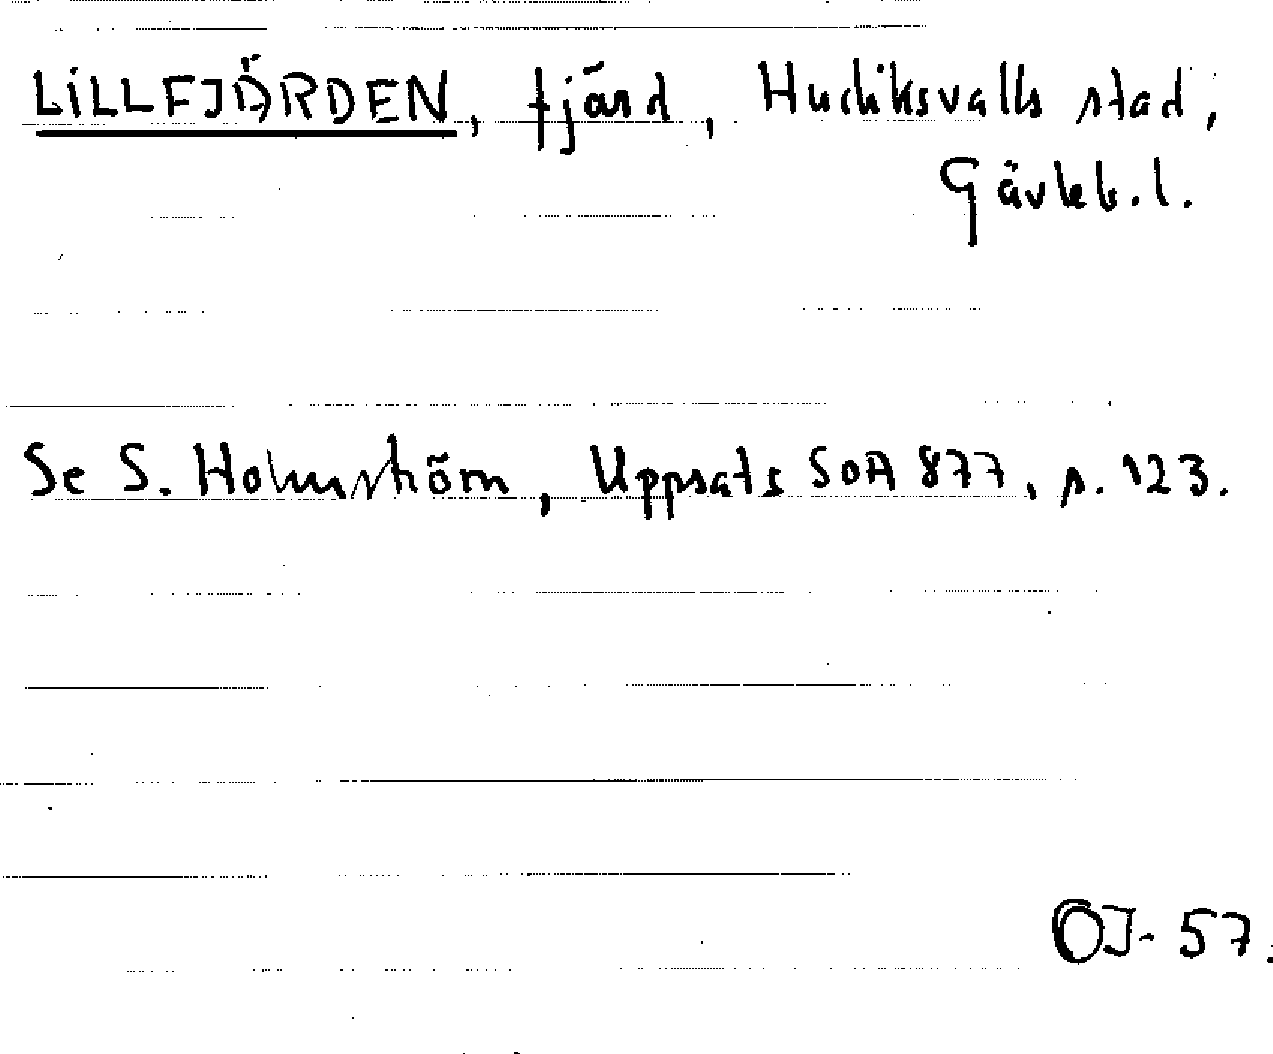 LILLFJÄRDEN, fjärd, Hudiksvalls stad,
Gävleb.l.
Se S. Holmström, Uppsats SOA 877, s. 123.
OJ- 57.